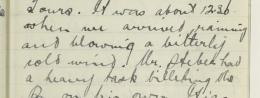 Tours. It was about 12.30
when we arrived raining
and blowing a bitterly
cold wind. Mr. Stebek had
a heavy task billeting the
on his own